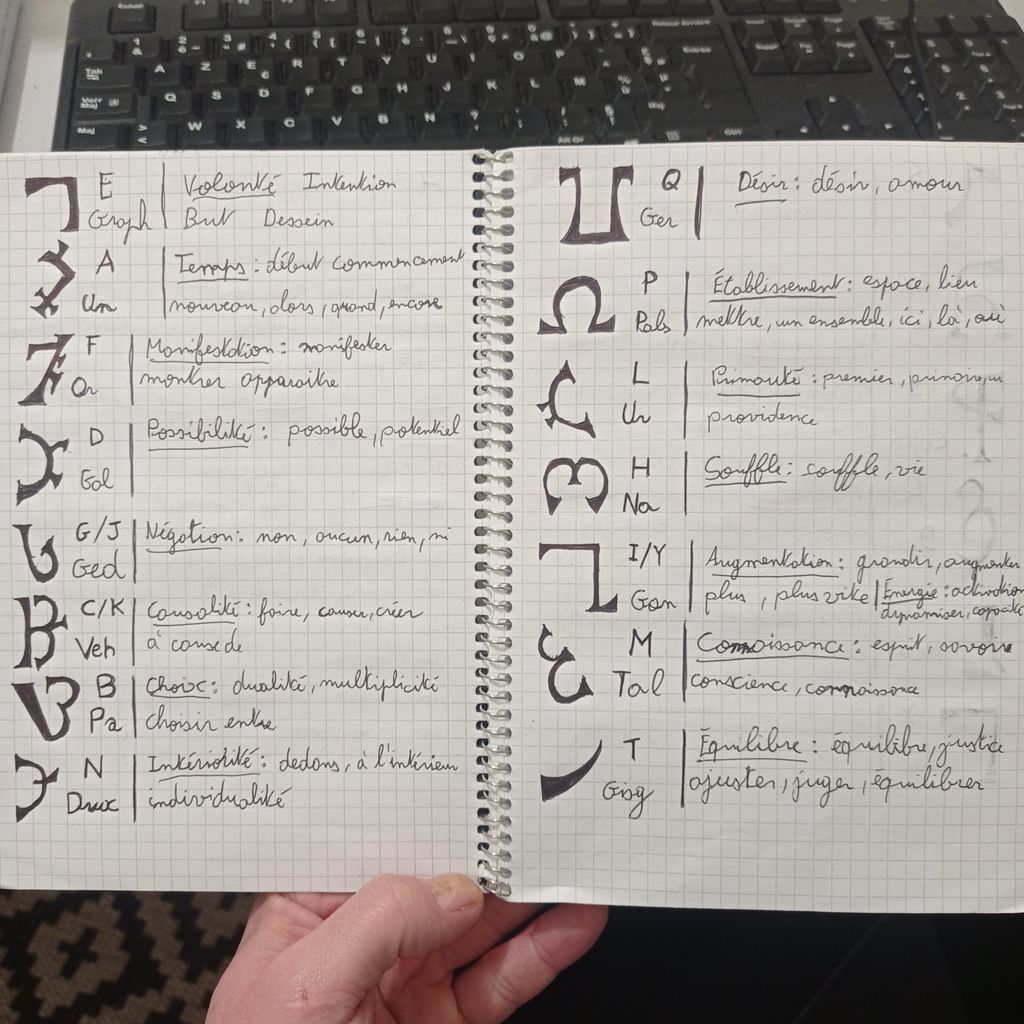 E
Graph
Volonté Intention
But Dessein
A
Un
Temps : début commencement
nouveau, alors, quand, encore
F
Or
Manifestation : manifester
montrer apparaitre
D
Gal
Possibilité : possible, potentiel
G/J
Ged
Négation : non, aucun, rien, ni
C/K
Veh
Causalité : faire, causer, créer
à cause de
B
Pa
Choix : dualité, multiplicité
choisir entre
N
Drux
Intériorité : dedans, à l'intérieur
individualité
Q
Ger
Désir : désir, amour
P
Pals
Établissement : espace, lieu
mettre, un ensemble, ici, là, où
L
Ur
Primauté : premier,
providence
H
Na
Souffle : souffle, vie
I/Y
Gon
Augmentation : grandir, augmenter
plus, plus vite | Énergie : activation
dynamiser, capacité
M
Tal
Connaissance : esprit, savoir
conscience, connaissance
T
Gisg
Équilibre : équilibre, justice
ajuster, juger, équilibrer